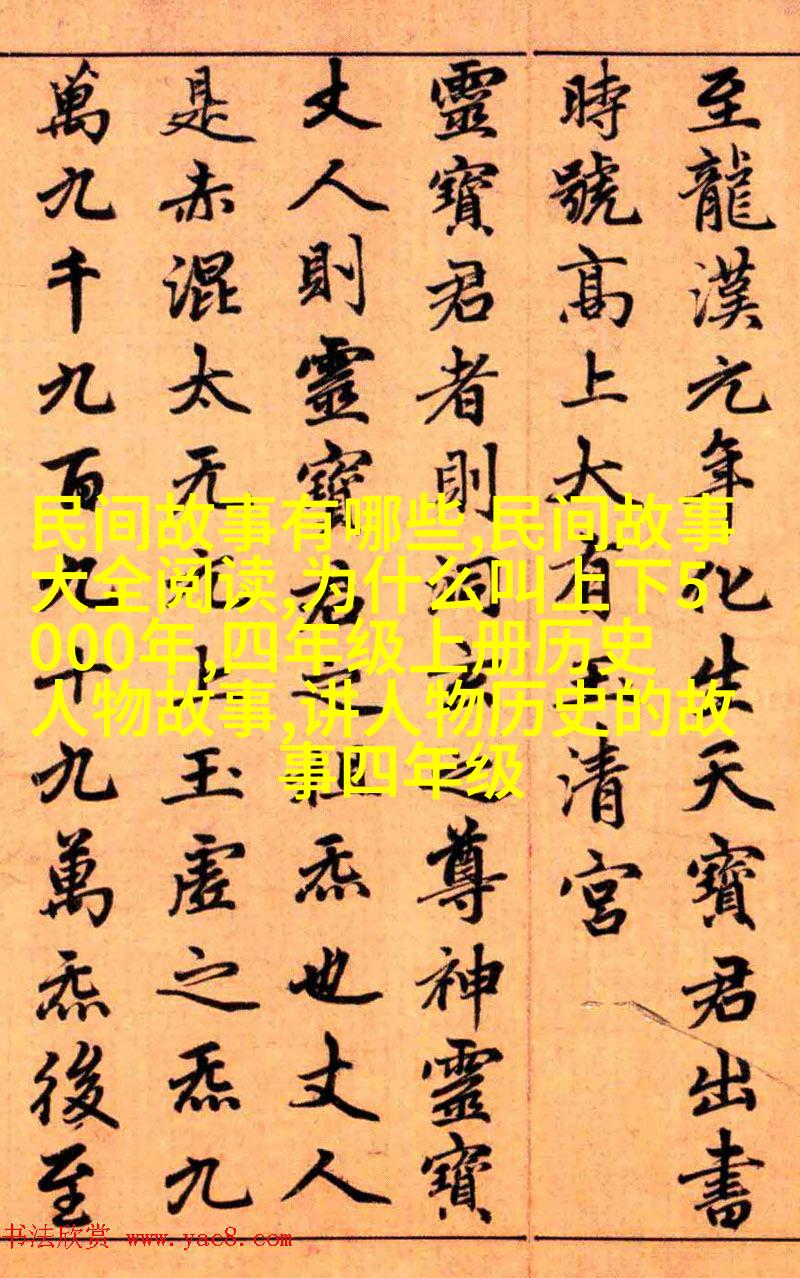 至龍漢元年化生天寶君出書
時號高上大有玉清宮
靈寶君者則洞玄之尊神靈寶
丈人則靈寶君之祖炁也丈人
是赤混太无元上玉虛之炁九
萬九千九百九十九萬炁後至
民间故事有哪些,民间故事
大全阅读,为什么叫上下5
000年,四年级上册历史
人物故事,讲人物历史的故
事四年级
书法欣赏 www.yac8.com